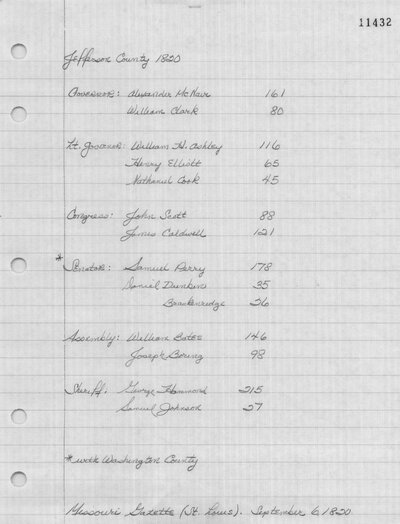 11432
Jefferson County 1820
Governor: Alexander McNair 161
William Clark 80
Lt. Governor: William H. Ashley 116
Henry Elliott 65
Nathaniel Cook 45
Congress: John Scott 88
James Caldwell 121
* Senator: Samuel Perry 178
Daniel Dunklin 35
Brackenridge 26
Assembly: William Bates 146
Joseph Boring 98
Sheriff: George Hammond 215
Samuel Johnson 27
* with Washington County
Missouri Gazette (St. Louis). September 6, 1820